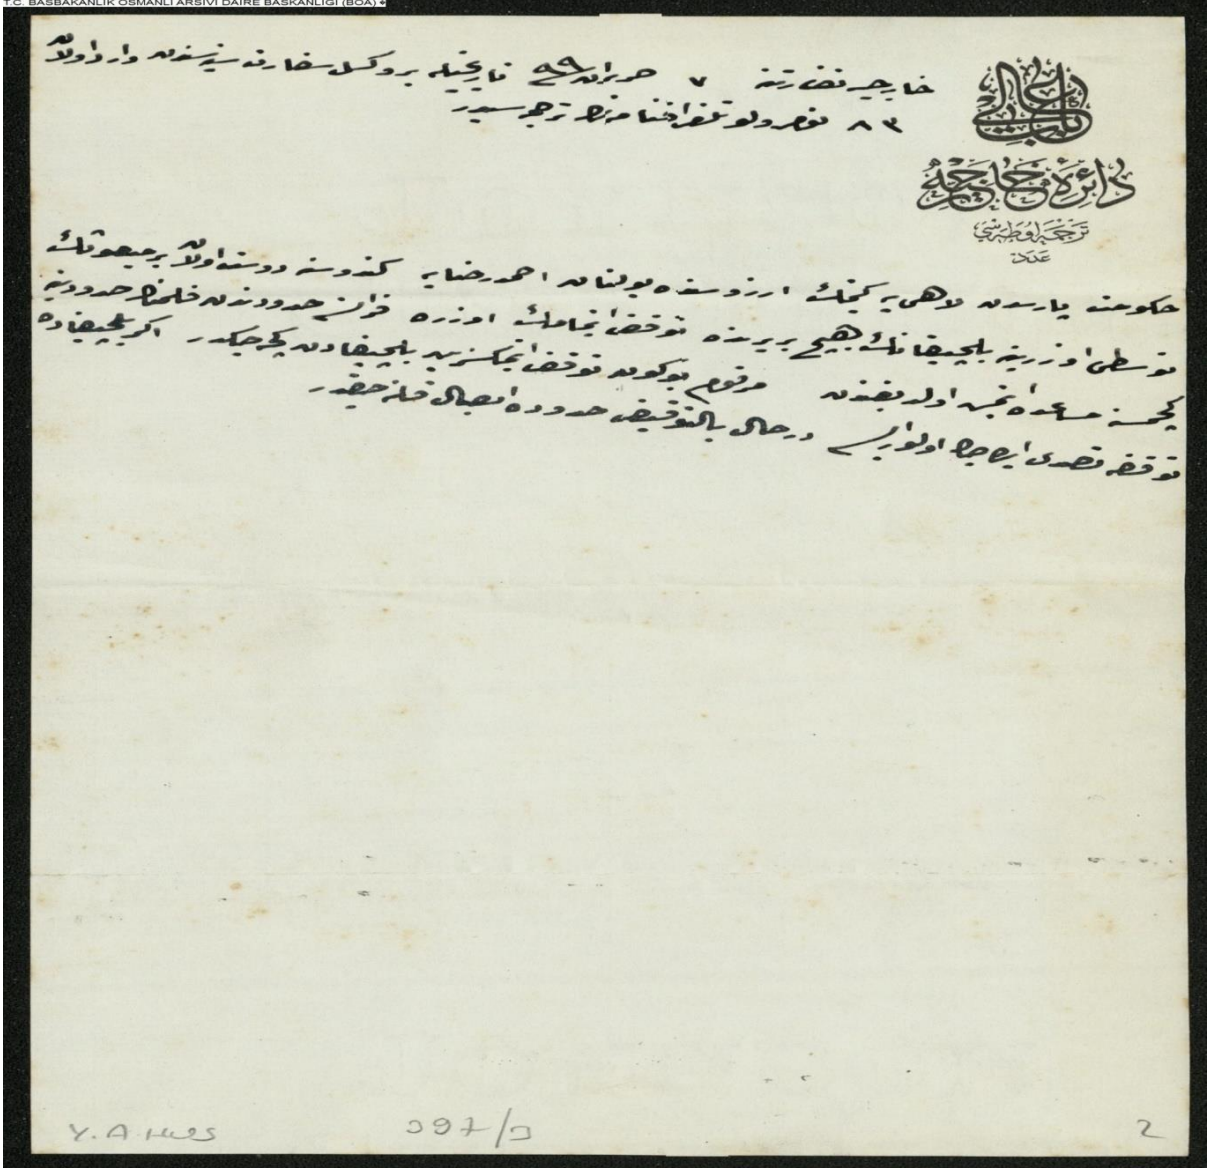 T.C. BASBAKANLIK OSMANLI ARSIVI DAIRE BASKANLIGI (BOA)
باب عالی
دائرۀ خارجیه
ترجمه اوطه‌سی
عدد
خارجیه نظارتنه ٧ حزیران ٩٩ تاریخیله بروکسل سفارت سنیه‌سندن وارد اولان
٨٣ نومرولو تلغرافنامه‌نك ترجمه‌سیدر
حکومت پارسدن لاهی‌یه کیتمك ارزوسنده بولنان احمد رضایه کندوسنه دوست اولان بر جمعیتك
توسطی اوزرینه بلچیقانك هیچ بر یرنده توقف ایتمامك اوزره فرانسه حدودندن فلمنك حدودینه
کچمسنه مساعده ایتمش اولدیغندن مرقوم بوکون توقف ایتمکسزین بلچیقادن کچه‌جکدر اکر بلچیقاده
توقفه تصدی ایده‌جك اولورایسه درحال بالتوقیف حدوده ایصال قلنه‌جقدر
Y.A.HUS
397/3
2